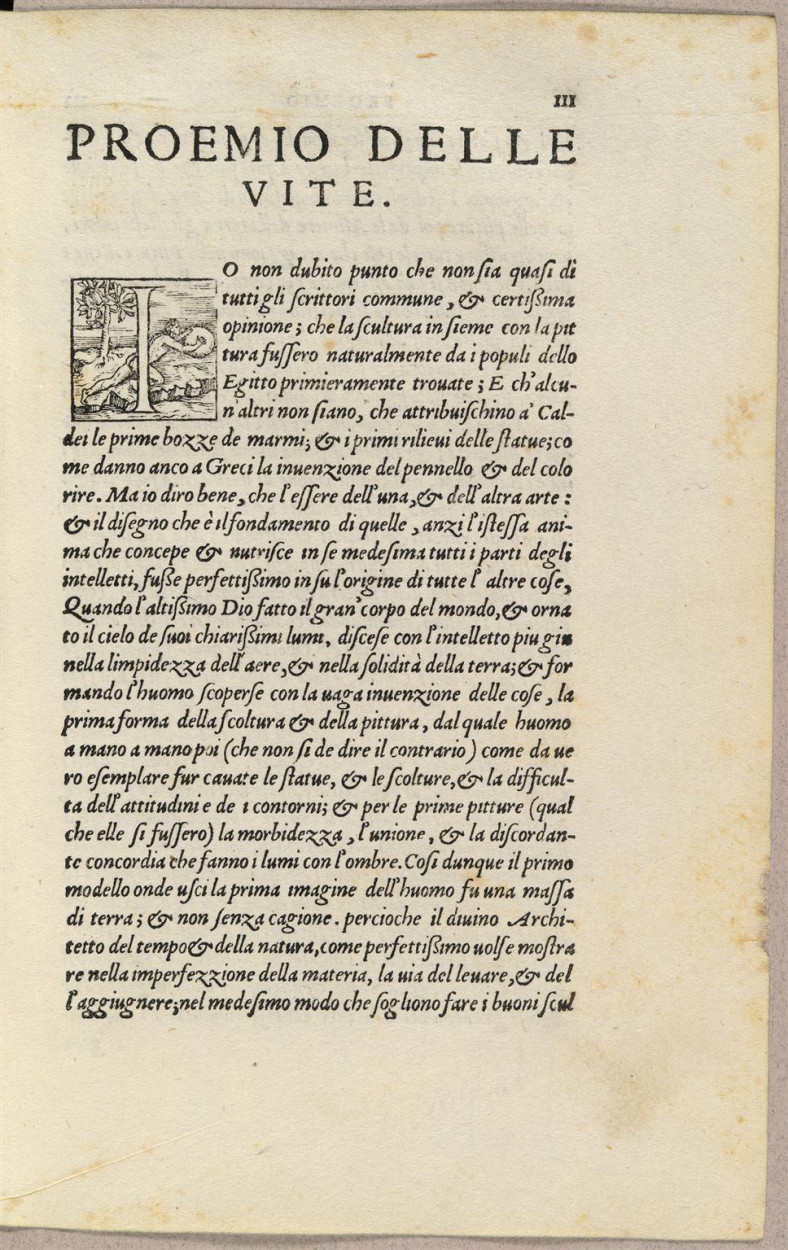 III
PROEMIO DELLE
VITE.
IO non dubito punto che non ſia quaſi di
tutti gli ſcrittori commune, & certiſsima
opinione; che la ſcultura inſieme con la pit
tura fuſſero naturalmente da i populi dello
Egitto primieramente trouate; E ch'alcu-
n'altri non ſiano, che attribuiſchino a' Cal-
dei le prime bozze de marmi; & i primi rilieui delle ſtatue; co
me danno anco a Greci la inuenzione del pennello & del colo
rire. Ma io diro bene, che l'eſſere dell'una, & dell'altra arte:
& il diſegno che è il fondamento di quelle, anzi l'iſteſſa ani-
ma che concepe & nutriſce in ſe medeſima tutti i parti degli
intelletti, fuſse perfettiſsimo in ſu l'origine di tutte l' altre coſe,
Quando l'altiſsimo Dio fatto il gran' corpo del mondo, & orna
to il cielo de ſuoi chiariſsimi lumi, diſceſe con l'intelletto piu giu
nella limpidezza dell'aere, & nella ſolidità della terra; & for
mando l'huomo ſcoperſe con la uaga inuenzione delle coſe, la
prima forma della ſcoltura & della pittura, dal quale huomo
a mano a mano poi (che non ſi de dire il contrario) come da ue
ro eſemplare fur cauate le ſtatue, & le ſcolture, & la difficul-
ta dell'attitudini e de i contorni; & per le prime pitture (qual
che elle ſi fuſſero) la morbidezza, l'unione, & la diſcordan-
te concordia che fanno i lumi con l'ombre. Coſi dunque il primo
modello onde uſci la prima imagine dell'huomo fu una maſſa
di terra; & non ſenza cagione. percioche il diuino Archi-
tetto del tempo & della natura, come perfettiſsimo uolſe moſtra
re nella imperfezzione della materia, la uia del leuare, & del
l'aggiugnere; nel medeſimo modo che ſogliono fare i buoni ſcul